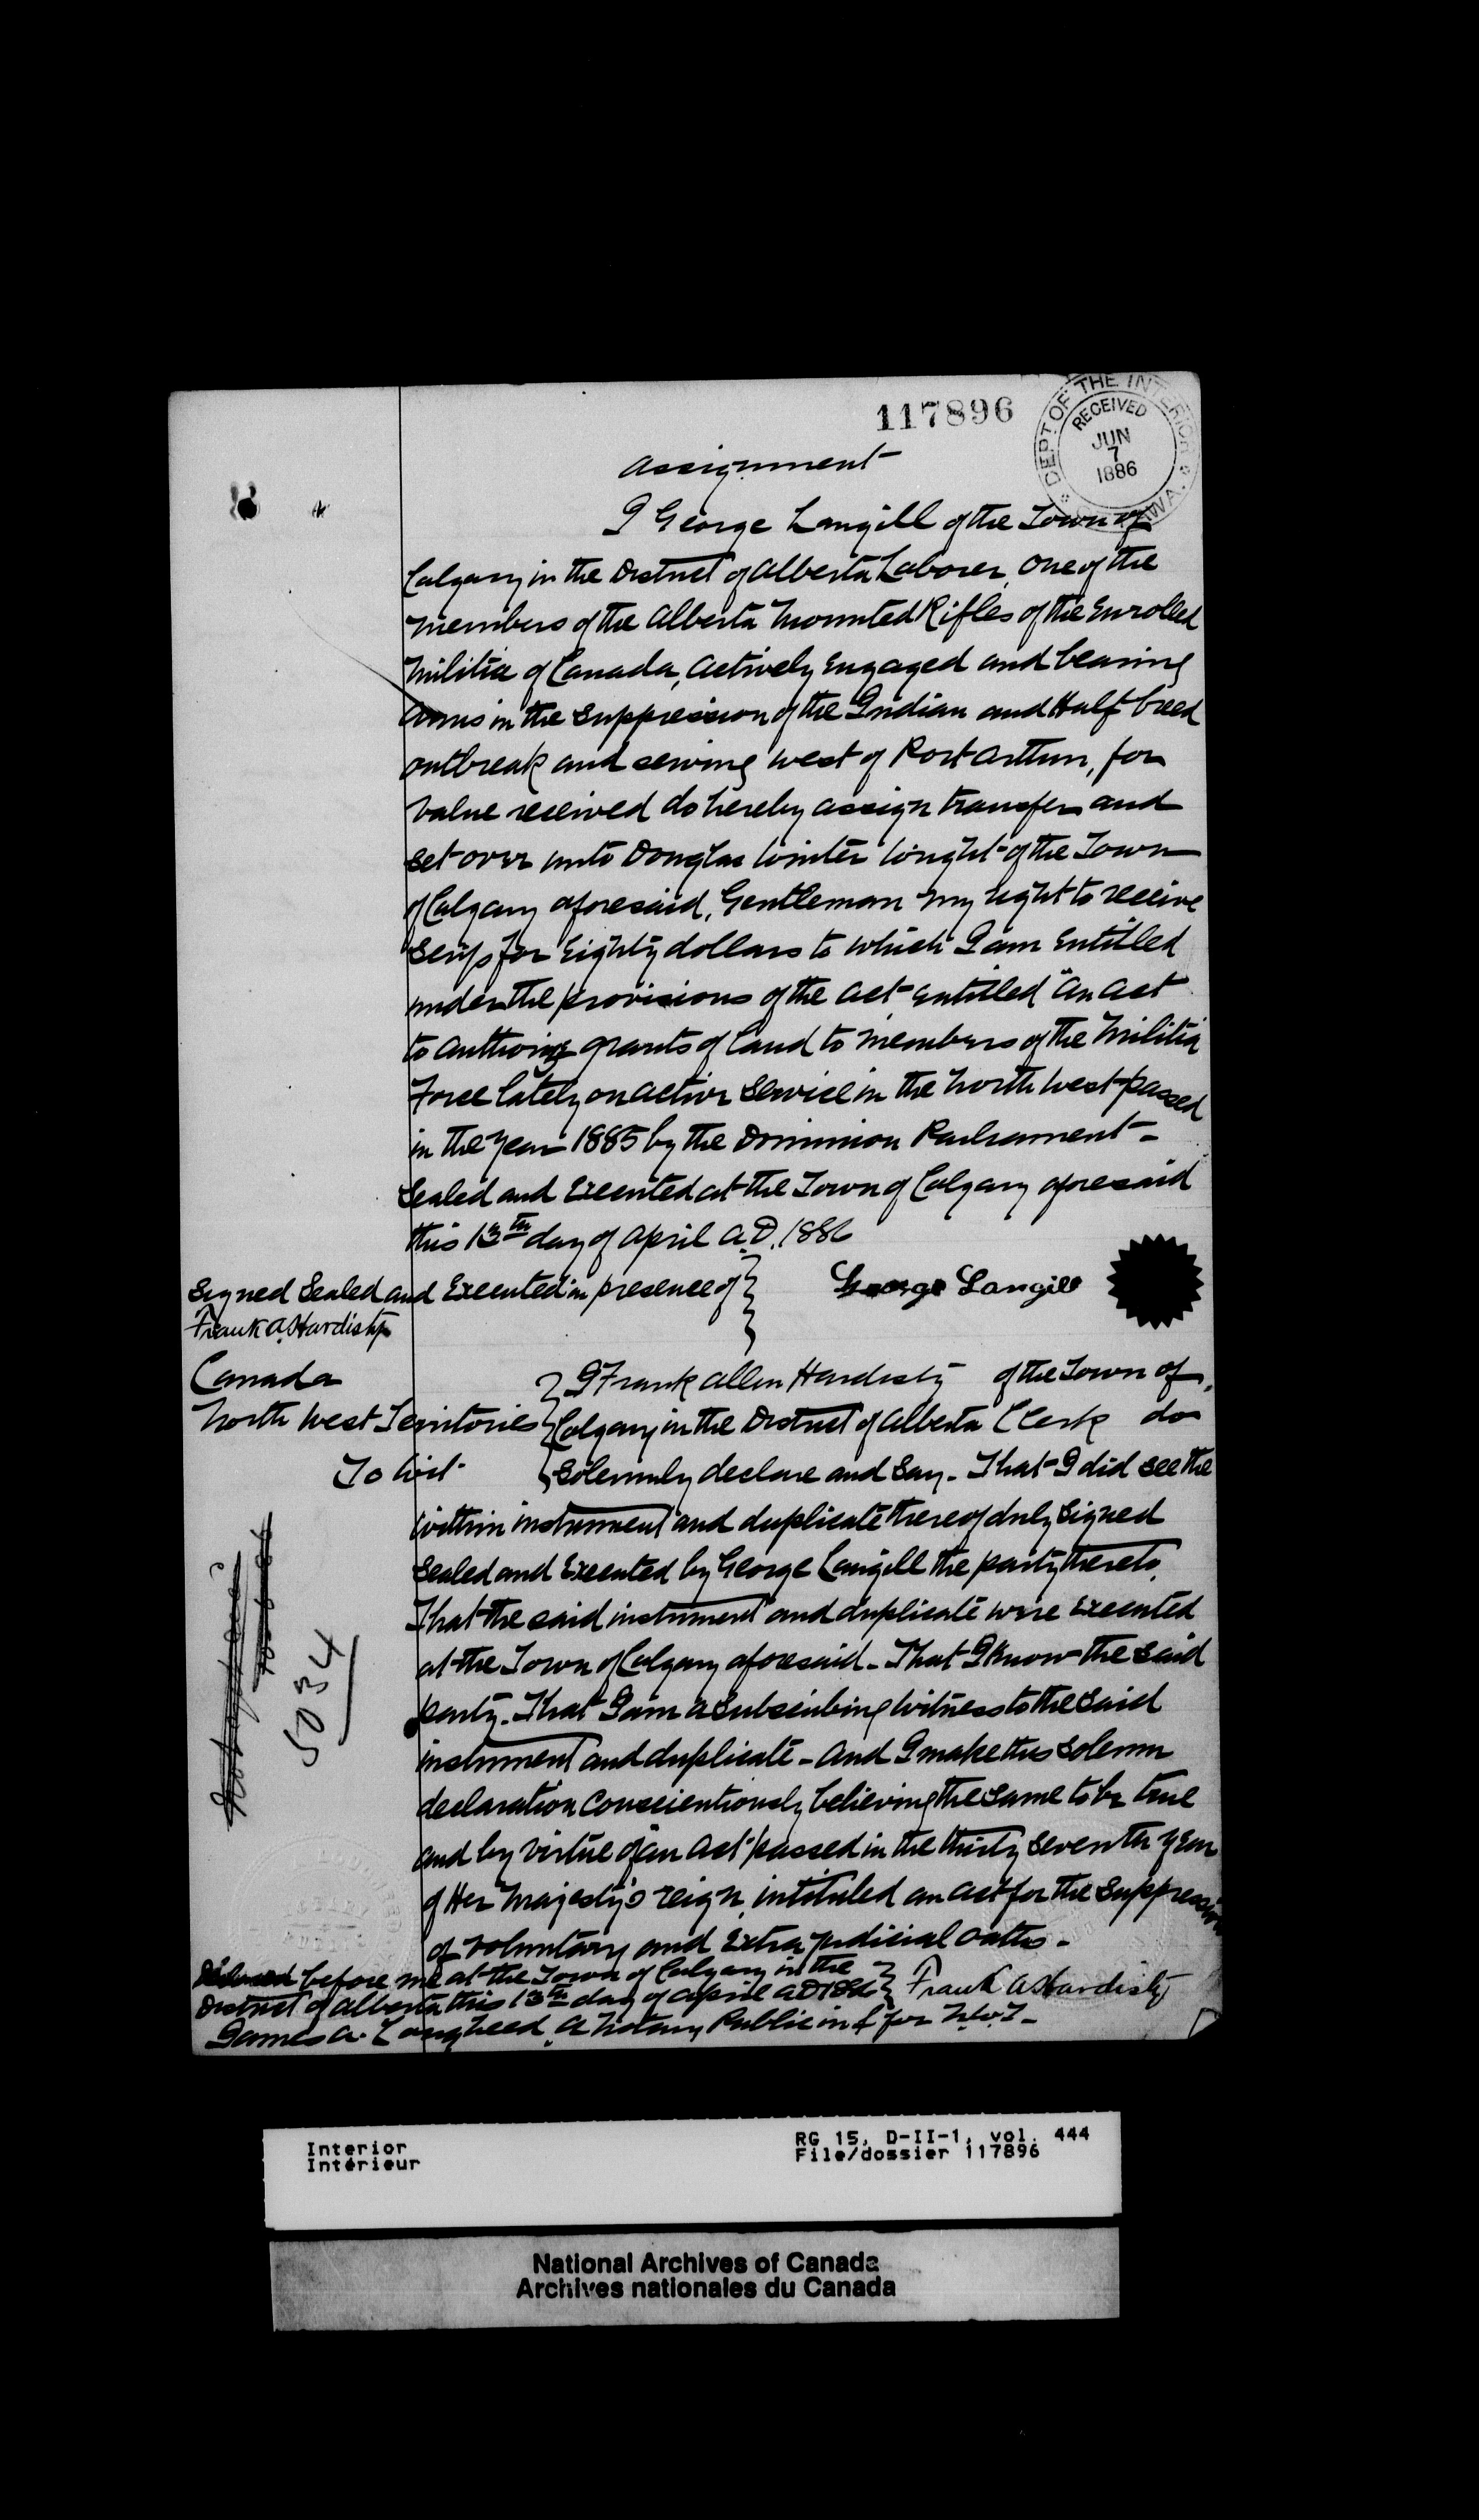 117896
DEPT OF THE INTERIOR
RECEIVED
JUN
7
1886
Assignment
I George Langill of the Town of
Calgary in the District of Alberta Laborer, One of the
members of the Alberta Mounted Rifles of the Enrolled
Militia of Canada, actively Engaged and bearing
Arms in the Suppression of the Indian and Half breed
outbreak and serving west of Port Arthur, for
value received do hereby assign transfer and
set over unto Douglas Winter Wright of the Town
of Calgary aforesaid, Gentleman my right to receive
Scrip for Eighty dollars to which I am Entitled
under the provisions of the Act entitled "An Act
to Authorize grants of Land to Members of the Militia
Force lately on active Service in the North West passed
in the Year 1885 by the Dominion Parliament -
Sealed and Executed at the Town of Calgary aforesaid
this 13th day of April A.D. 1886
Signed Sealed and Executed in presence of
George Langill
Frank A. Hardisty
Canada
North West Territories
To Wit
I Frank Allen Hardisty of the Town of
Calgary in the District of Alberta Clerk do
Solemnly declare and Say - That I did see the
within instrument and duplicate thereof duly Signed
Sealed and Executed by George Langill the party thereto.
That the said instrument and duplicate were Executed
at the Town of Calgary aforesaid - That I know the said
party. That I am a Subscribing Witness to the Said
instrument and duplicate - And I make this Solemn
declaration Conscientiously believing the Same to be true
and by virtue of an Act passed in the thirty Seventh Year
of Her Majesty's reign, intituled an Act for the Suppression
of Voluntary and Extra judicial Oaths -
Declared before me at the Town of Calgary in the
District of Alberta this 13th day of April AD 1886
Frank A Hardisty
James A. Lougheed A Notary Public in & for N.W.T -
5034
Interior
Intérieur
RG 15, D-II-1, vol. 444
File/dossier 117896
National Archives of Canada
Archives nationales du Canada